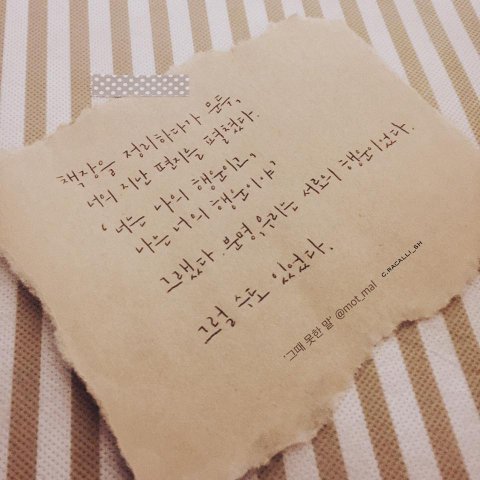 책장을 정리하다가 문득,
너의 지난 편지를 펼쳤다.
'너는 나의 행운이고,
나는 너의 행운이야'
그랬다 분명, 우리는 서로의 행운이었다.
그럴 수도 있었다.
'그때 못한 말' @mot_mal
C.RACALLI_GH